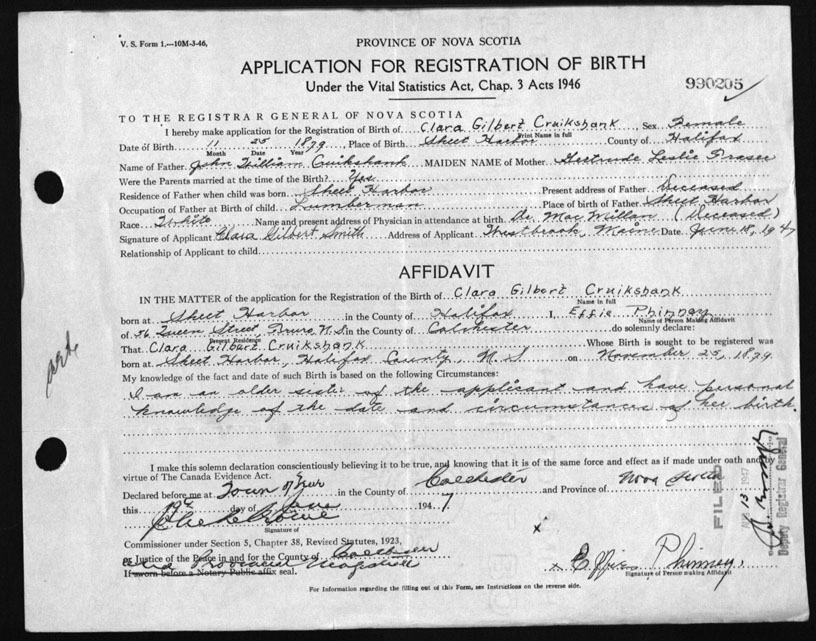 V. S. Form 1.—10M-3-46.
PROVINCE OF NOVA SCOTIA
APPLICATION FOR REGISTRATION OF BIRTH
Under the Vital Statistics Act, Chap. 3 Acts 1946
990205
TO THE REGISTRAR GENERAL OF NOVA SCOTIA
I hereby make application for the Registration of Birth of Clara Gilbert Cruikshank, Sex Female
Print Name in full
Date of Birth 11 25 1879 Place of Birth Sheet Harbor County of Halifax
Month Date Year
Name of Father John William Cruikshank MAIDEN NAME of Mother Gertrude Leslie Fraser
Were the Parents married at the time of the Birth? Yes
Residence of Father when child was born Sheet Harbor Present address of Father Deceased
Occupation of Father at Birth of child Lumberman Place of birth of Father Sheet Harbor
Race White Name and present address of Physician in attendance at birth Dr. MacMillan (Deceased)
Signature of Applicant Clara Gilbert Smith Address of Applicant Westbrook, Maine Date June 18, 1947
Relationship of Applicant to child
AFFIDAVIT
IN THE MATTER of the application for the Registration of the Birth of Clara Gilbert Cruikshank
Name in full
born at Sheet Harbor in the County of Halifax I, Effie Phinney
Name of Person Making Affidavit
of 56 Queen Street, Truro N.S. in the County of Colchester do solemnly declare:
Present Residence
That Clara Gilbert Cruikshank Whose Birth is sought to be registered was
born at Sheet Harbor, Halifax County, N.S. on November 25, 1879
My knowledge of the fact and date of such Birth is based on the following Circumstances:
I am an older sister of the applicant and have personal
knowledge of the date and circumstances of her birth.
I make this solemn declaration conscientiously believing it to be true, and knowing that it is of the same force and effect as if made under oath and by
virtue of The Canada Evidence Act.
Declared before me at Town of Truro in the County of Colchester and Province of Nova Scotia
this 19th day of June 1947
Signature of
Commissioner under Section 5, Chapter 38, Revised Statutes, 1923,
or Justice of the Peace in and for the County of Colchester
and Provincial Magistrate
If sworn before a Notary Public affix seal.
x
x Effie Phinney
Signature of Person making Affidavit
For Information regarding the filling out of this Form, see Instructions on the reverse side.
FILED
13 1947
Deputy Registrar General